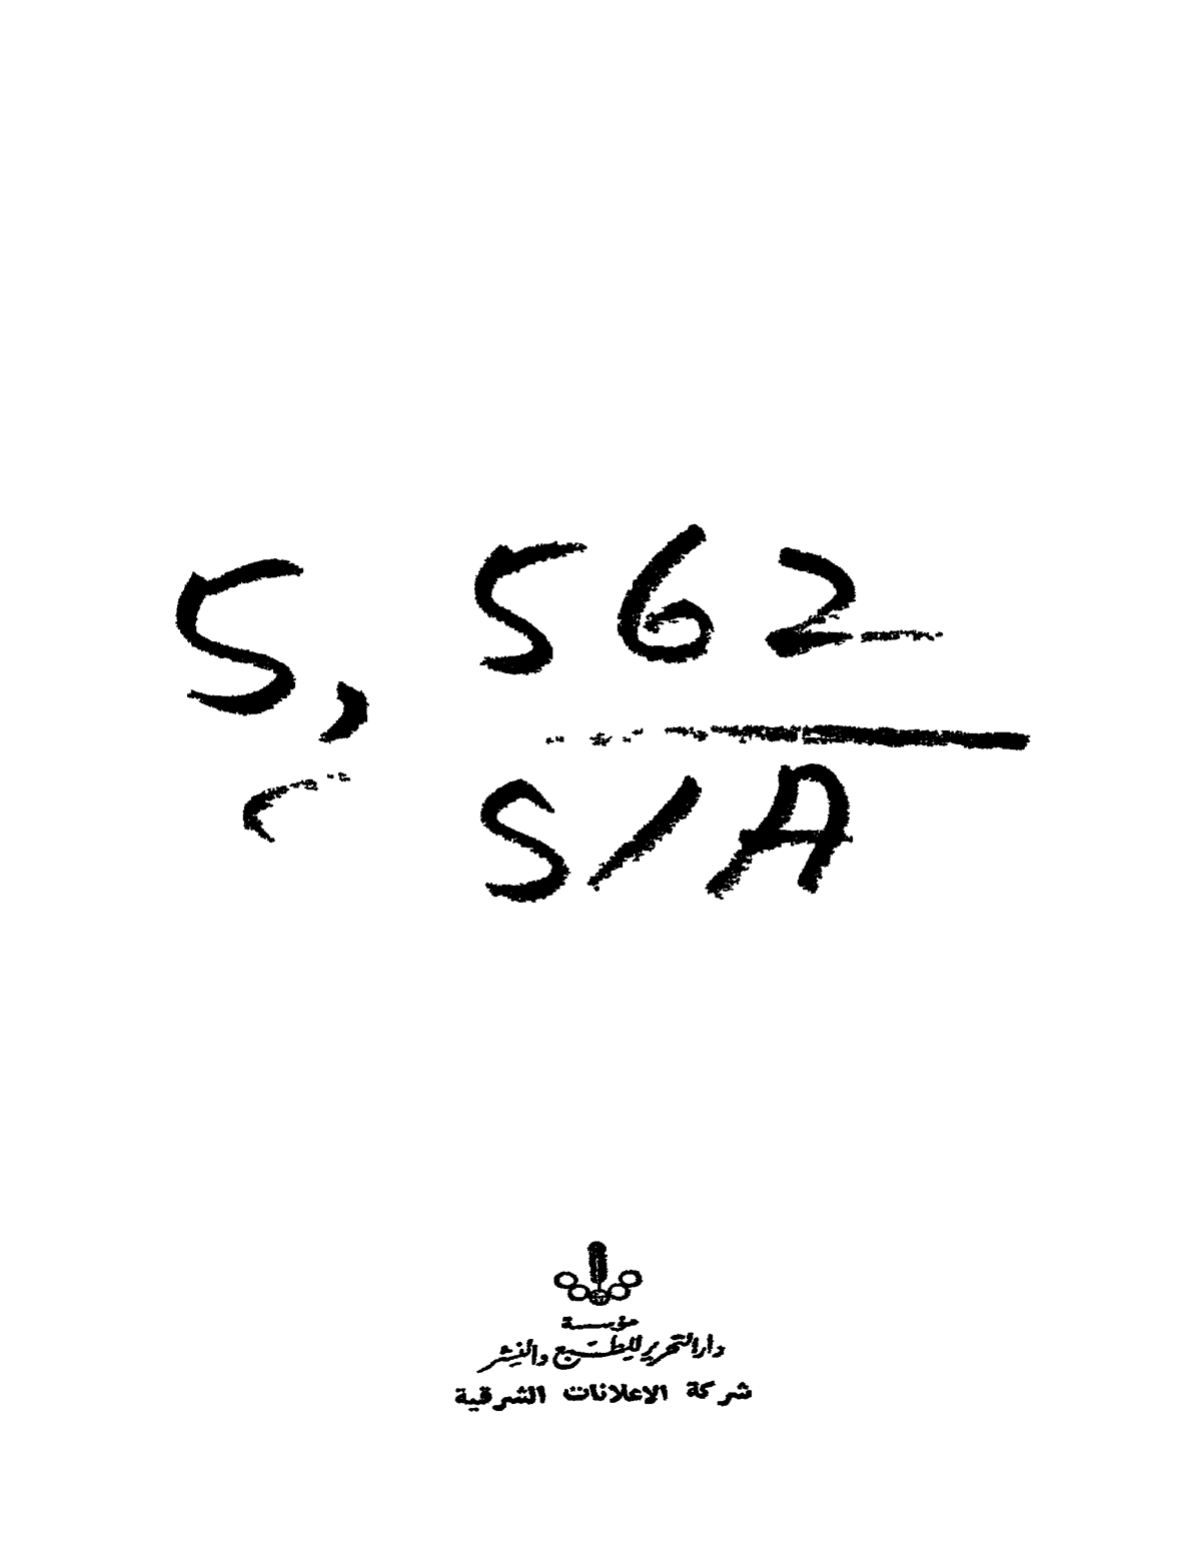 5,562
S/A
مؤسسة
دار التحرير للطبع والنشر
شركة الاعلانات الشرقية